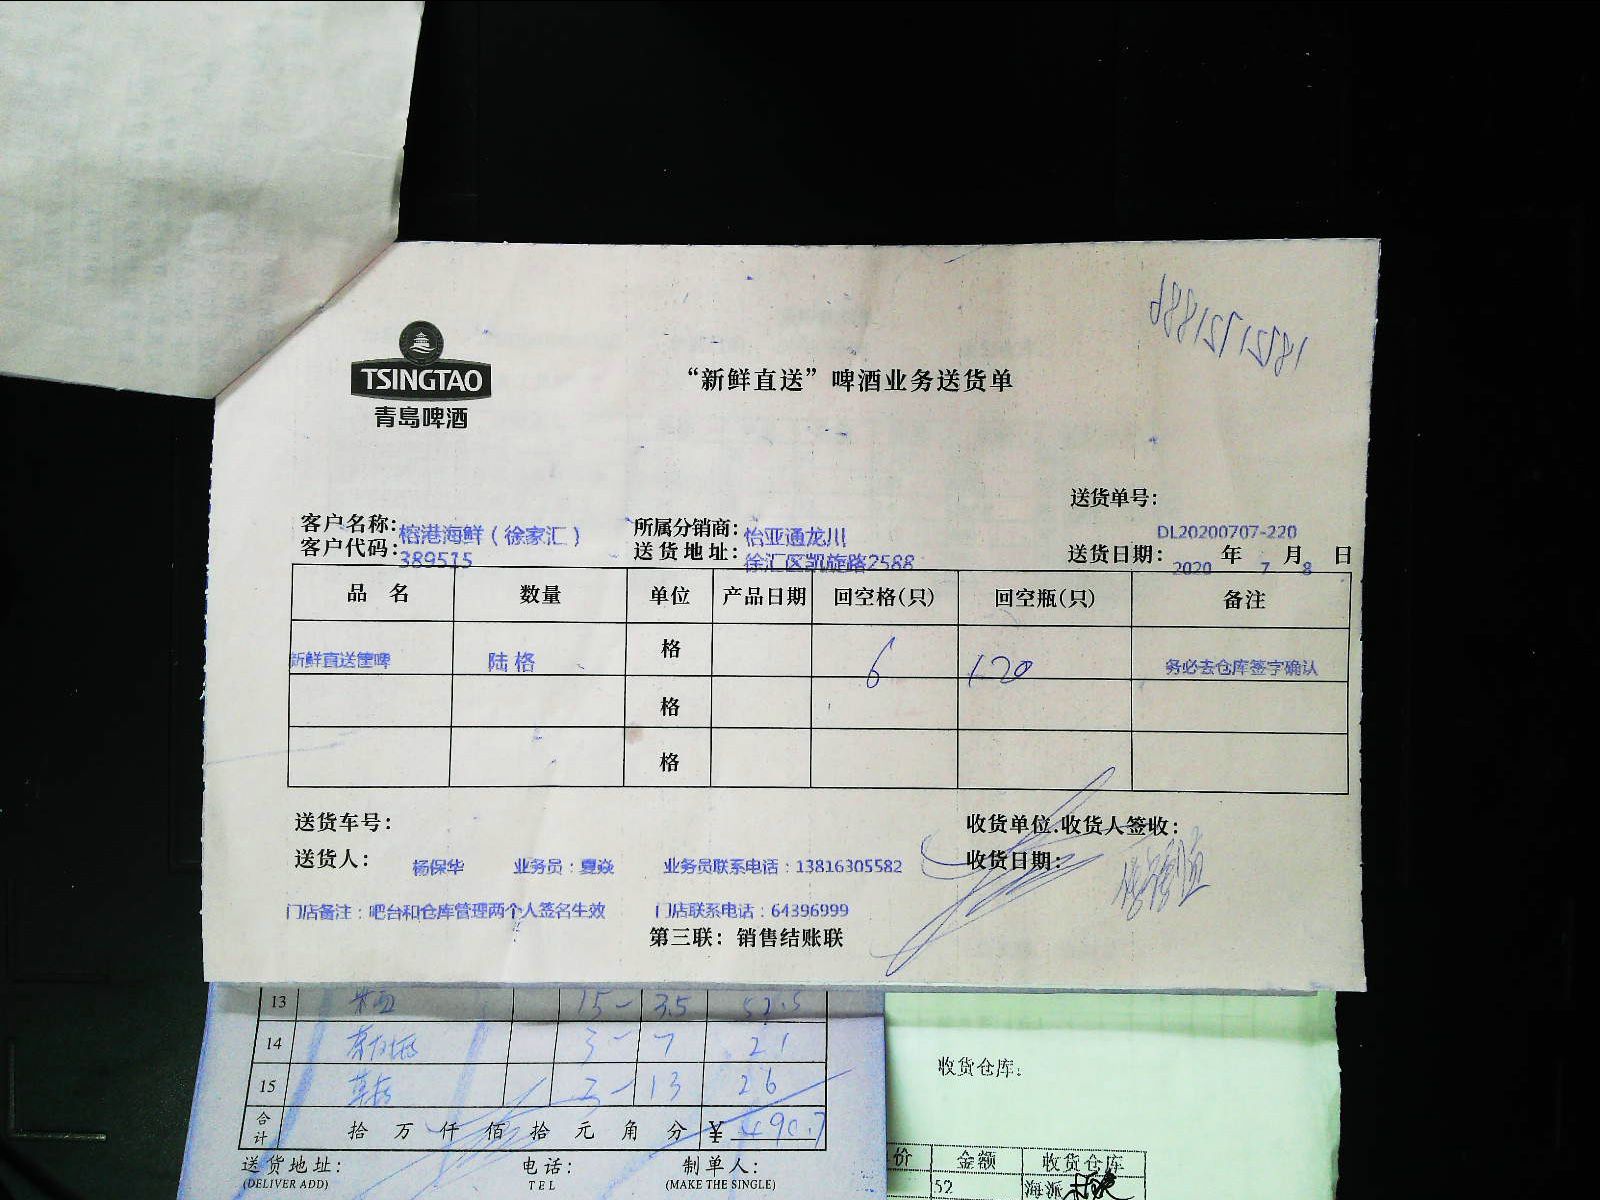 18721721886
TSINGTAO
青岛啤酒
“新鲜直送”啤酒业务送货单
送货单号：
DL20200707-220
客户名称：榕港海鲜（徐家汇） 所属分销商：怡亚通龙川
客户代码：389515 送货地址：徐汇区凯旋路2588 送货日期：2020 年 7 月 8 日
品 名 数量 单位 产品日期 回空格(只) 回空瓶(只) 备注
新鲜直送筐啤 陆格 格 6 120 务必去仓库签字确认
格
格
送货车号： 收货单位.收货人签收：
送货人： 杨保华 业务员：夏焱 业务员联系电话：13816305582 收货日期：
门店备注：吧台和仓库管理两个人签名生效 门店联系电话：64396999
第三联：销售结账联
13 15- 3.5 52.5
14 3- 7 21
15 2- 13 26
合计 拾 万 仟 佰 拾 元 角 分 ¥490.7
送货地址： 电话： 制单人：
(DELIVER ADD) TEL (MAKE THE SINGLE)
收货仓库：
价 金额 收货仓库
52 海派